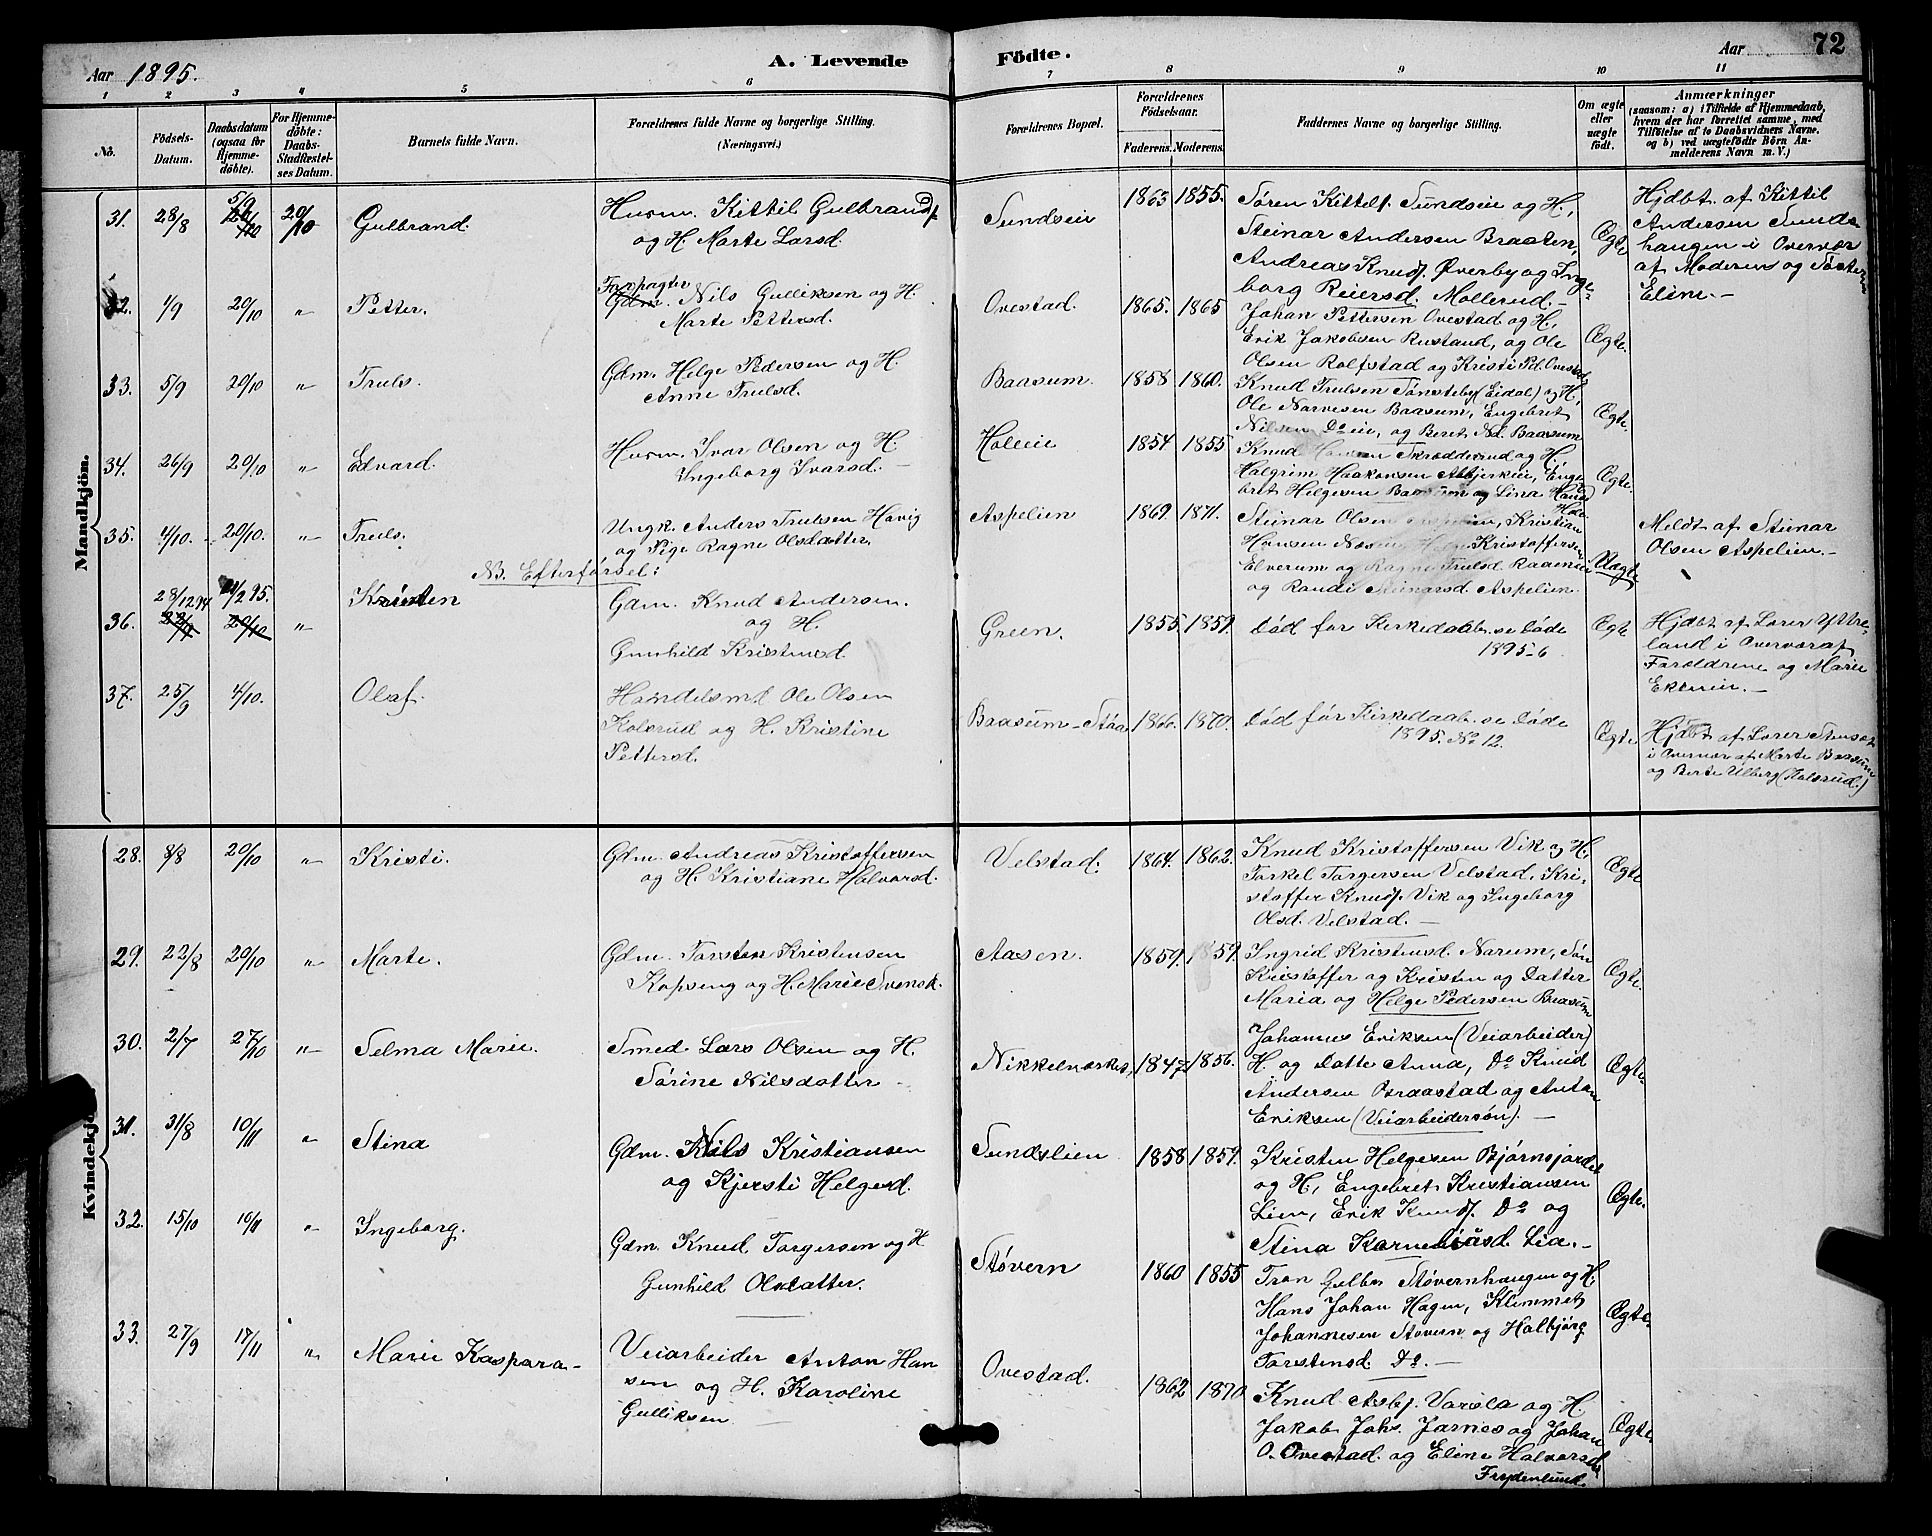 Aar 1895.
A. Levende
Fødte.
Aar
72
1 2 3 4 5 6 7 8 9 10 11
No.
Fødsels-Datum.
Daabsdatum (ogsaa for Hjemme-døbte).
For Hjemme-døbte: Daabs-Stadfæstel-ses Datum.
Barnets fulde Navn.
Forældrenes fulde Navne og borgerlige Stilling.
(Næringsvei.)
Forældrenes Bopæl.
Forældrenes Fødselsaar.
Faderens. Moderens.
Faddernes Navne og borgerlige Stilling.
Om ægte eller uægte født.
Anmærkninger
(saasom: a) i Tilfælde af Hjemmedaab, hvem der har forrettet samme, med Tilføielse af to Daabsvidners Navne, og b) ved uægtefødte Børn Anmelderens Navn m. V.)
Mandkjön.
31. 28/8 5/9 20/10 20/10 Gulbrand. Husm. Kittil Gulbrands. og H. Marte Larsd. Sundseie 1863 1855. Søren Kittels. Sundseie og H,
Steinar Andersen Braaten,
Andreas Knuds. Øverby og Inge-
borg Reiersd. Mollerud. Ægte
Hjdbt. af Kittil
Andersen Sunds-
haugen i Overvær
af Moderens og Søster
Eline.
32. 1/9 20/10 " Petter. Forpagter
Gdm. Nils Gulliksen og H.
Marte Pettersd. Ovestad. 1865. 1865 Johan Pettersen Ovestad og H,
Erik Jakobsen Rustand, og Ole
Olsen Rolfstad og Kristi Pd. Ovestad Ægte.
33. 5/9 20/10 " Truls. Gdm. Helge Pedersen og H.
Anne Trulsd. Baasum. 1858 1860. Knud Trulsen Tønsteby (Eidal) og H,
Ole Narvesen Baasum, Engebret
Nilsen Do eie, og Beret Nd. Baasum Ægte.
34. 26/9 20/10 " Edvard. Husm. Ivar Olsen og H.
Ingeborg Ivarsd. Holeie 1854 1855 Knud Hansen Skrædderud og H.
Halgrim Haakonsen Asbjerkeie, Enge-
bret Helgesen Baasum og Lina Hansd Ægte.
35. 4/10. 20/10. " Truls. Ungk. Anders Trulsen Havig
og Pige Ragne Olsdatter. Aspelien 1869 1871. Steinar Olsen Aspelien, Kristian
Hansen Næsen, Helge Kristoffersen
Elverum og Ragne Trulsd. Raamen
og Randi Steinarsd. Aspelien. Uægte
Meldt af Steinar
Olsen Aspelien.
NB. Efterførsel:
36. 28/12 94 22/9 /2 95. 20/10 " Kristen Gdm. Knud Andersen.
og H.
Gunhild Kristensd. Green. 1855. 1859. Død før Kirkedaab. se Døde
1895-6 Ægte
Hjdbt. af Lærer Ytre-
land i Overvær af
Forældrene og Marie
Ekerneie.
37. 25/9 4/10. Olaf. Handelsmd. Ole Olsen
Kolsrud og H. Kristine
Pettersd. Baasum-Støa 1866. 1870. Død før Kirkedaab. se Døde
1895. No 12. Ægte
Hjdbt af Lærer Stensæt
i Overvær af Marte Baasum
og Berte Ulberg (Kolsrud.)
Kvindekjön
28. 8/8 20/10 " Kristi. Gdm. Andreas Kristoffersen
og H. Kristiane Halvorsd. Velstad. 1864. 1862. Knud Kristoffersen Vik og H,
Torkel Torgersen Velstad, Kri-
stoffer Knuds. Vik og Ingeborg
Olsd. Velstad. Ægte
29. 22/8 20/10 " Marte. Gdm. Torsten Kristensen
Kopseng og H. Marie Svensk. Aasen. 1859. 1859. Ingrid Kristensd. Narum, Søn
Kristoffer og Kristen og Datter
Maria og Helge Pedersen Baasum Ægte.
30. 2/7 27/10 " Selma Marie. Smed Lars Olsen og H.
Sørine Nilsdatter Nikkelværket, 1847 1856. Johannes Eriksen (Veiarbeider)
H. og Datte Anna, Do Knud
Andersen Braastad og Anton
Eriksen (Veiarbeidersøn). Ægte
31. 31/8 10/11 " Stina Gdm. Nils Kristiansen
og Kjersti Helgesd. Sundslien 1858 1859. Kristen Helgesen Bjørnsjordet
og H, Engebret Kristiansen
Lien, Erik Knuds. Do og
Stina Korneliusd. Lia. Ægte.
32. 15/10 10/11 " Ingeborg. Gdm. Knud Torgersen og H
Gunhild Olsdatter. Støvern 1860 1855 Tron Gulbr. Støvernhaugen og H.
Hans Johan Hagen, Klemmet
Johannesen Støvern og Halbjørg
Torstensd. Do. Ægte.
33. 27/9 17/11 " Marie Kaspara Veiarbeider Anton Han
sen og H. Karoline
Gulliksen. Ovestad. 1862 1870 Knud Asbj. Varsla og H.
Jakob Johs. Jarnes og Johan
O. Ovestad og Eline Halvorsd
Frydenlund. Ægte.